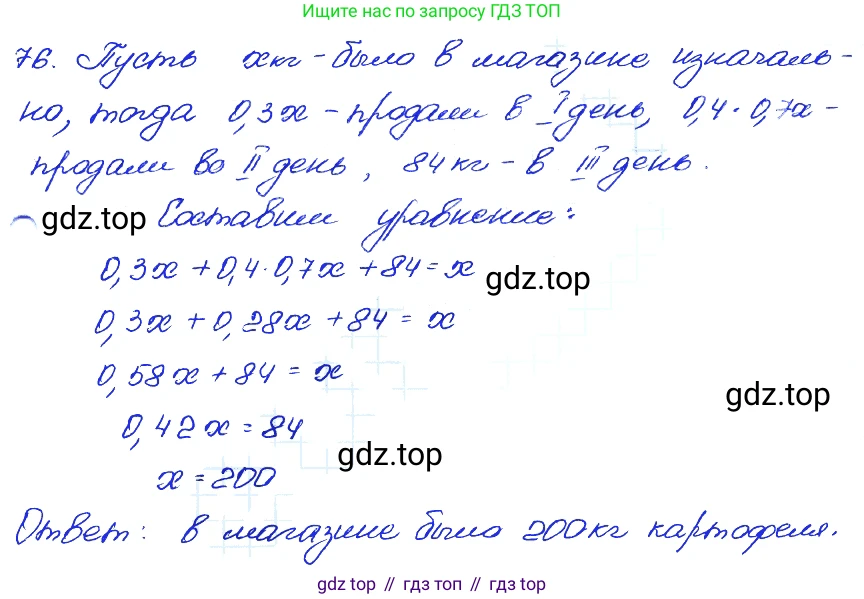 Ищите нас по запросу ГДЗ ТОП
76. Пусть x кг - было в магазине изначаль-
но, тогда 0,3x - продали в I день, 0,4·0,7x -
продали во II день, 84 кг - в III день.
gdz.top Составим уравнение:
0,3x + 0,4·0,7x + 84 = x
gdz.top
0,3x + 0,28x + 84 = x
0,58x + 84 = x
gdz.top
0,42x = 84
gdz.top
x = 200
Ответ: в магазине было 200 кг картофеля.
gdz top // гдз топ // gdz top